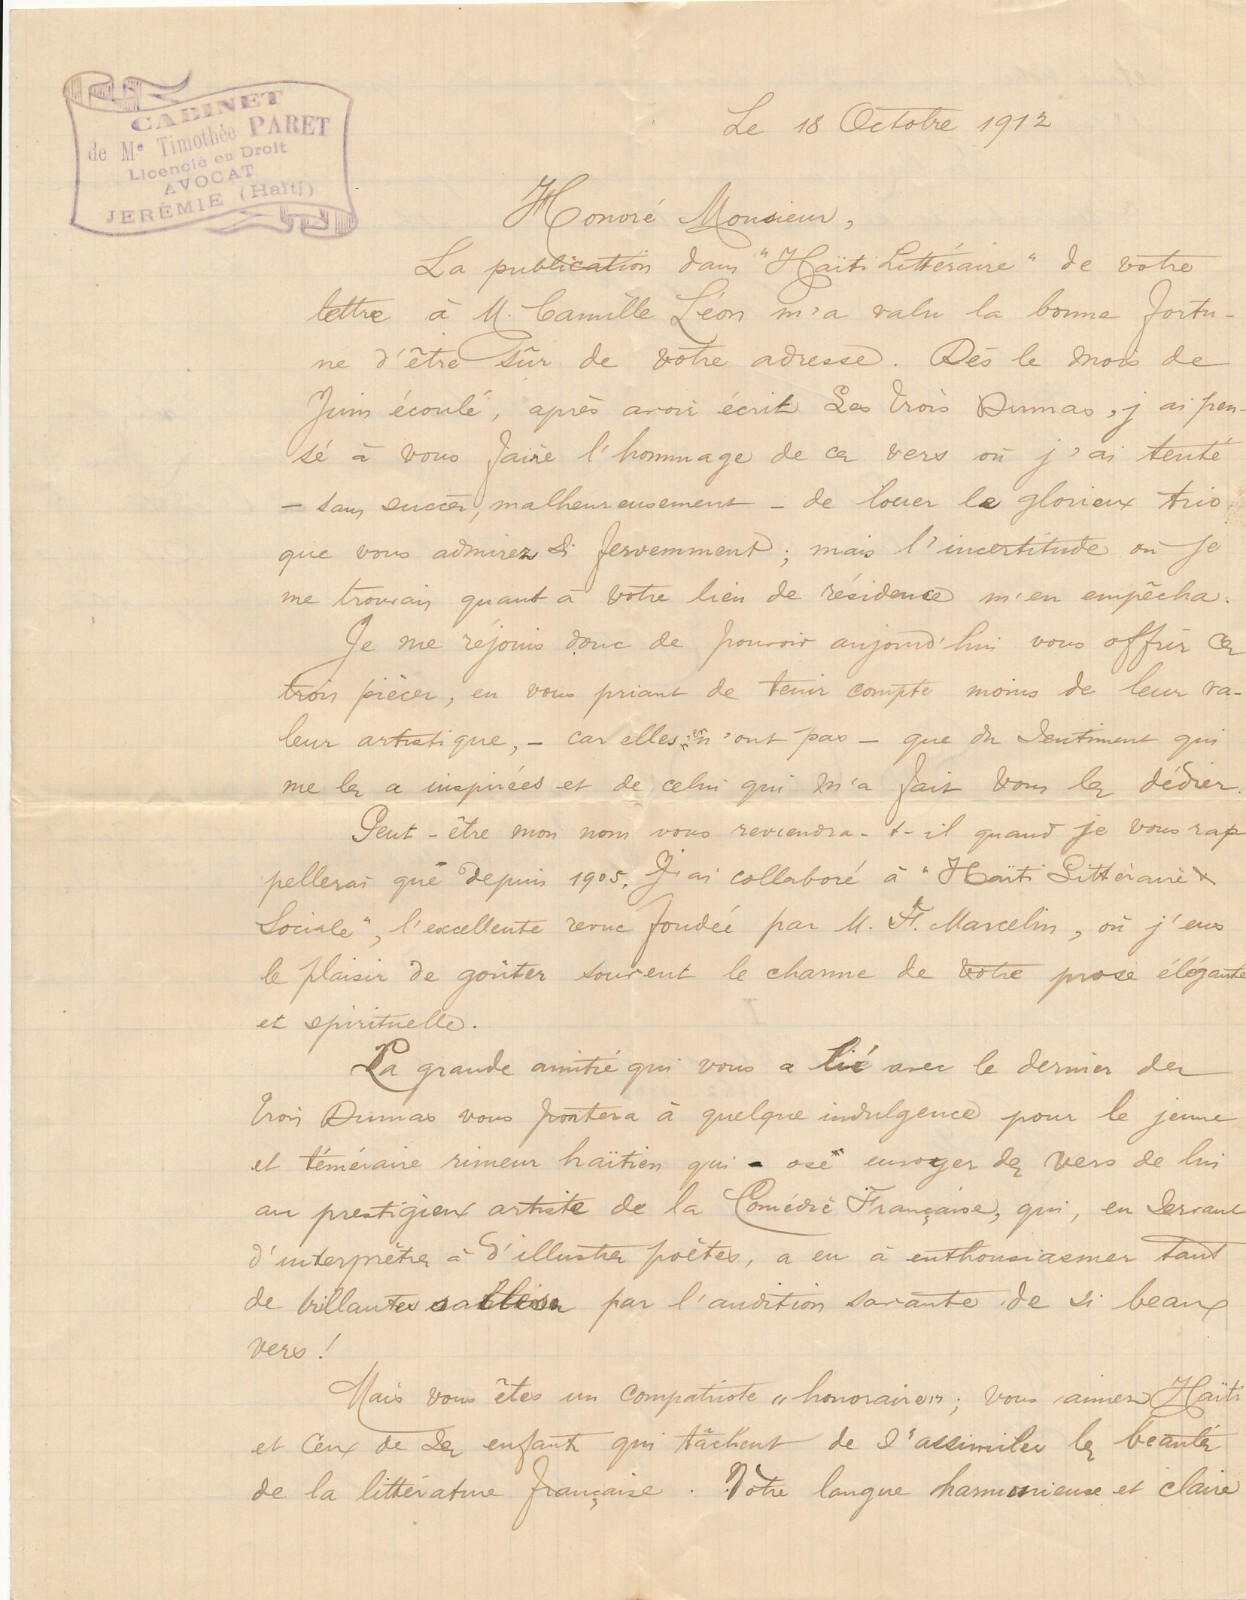 CABINET
de Me Timothée PARET
Licencié en Droit
AVOCAT
JEREMIE (Haïti)
Le 18 Octobre 1912
Honoré Monsieur,
La publication dans "Haïti Littéraire" de votre
lettre à M. Camille Léon m'a valu la bonne fortu-
ne d'être sûr de votre adresse. Dès le mois de
Juin écoulé, après avoir écrit Les Trois Dumas, j'ai pen-
sé à vous faire l'hommage de ces vers où j'ai tenté
– sans succès, malheureusement – de louer le glorieux trio
que vous admirez si fervemment ; mais l'incertitude où je
me trouvais quant à votre lieu de résidence m'en empêcha.
Je me réjouis donc de pouvoir aujourd'hui vous offrir ces
trois pièces, en vous priant de tenir compte moins de leur va-
leur artistique, – car elles n'en ont pas – que du sentiment qui
me les a inspirées et de celui qui m'a fait vous les dédier.
Peut-être mon nom vous reviendra-t-il quand je vous rap
pellerai que depuis 1905, j'ai collaboré à "Haïti Littéraire &
Sociale", l'excellente revue fondée par M. F. Marcelin, où j'eus
le plaisir de goûter souvent le charme de votre prose élégante
et spirituelle.
La grande amitié qui vous a lié avec le dernier des
Trois Dumas vous portera à quelque indulgence pour le jeune
et téméraire rimeur haïtien qui ose envoyer des vers de lui
au prestigieux artiste de la Comédie Française, qui, en servant
d'interprète à d'illustres poètes, a eu à enthousiasmer tant
de brillantes par l'audition savante de si beaux
vers !
Mais vous êtes un compatriote "honoraire" ; vous aimez Haïti
et ceux de ses enfants qui tâchent de s'assimiler les beautés
de la littérature française. Votre langue harmonieuse et claire